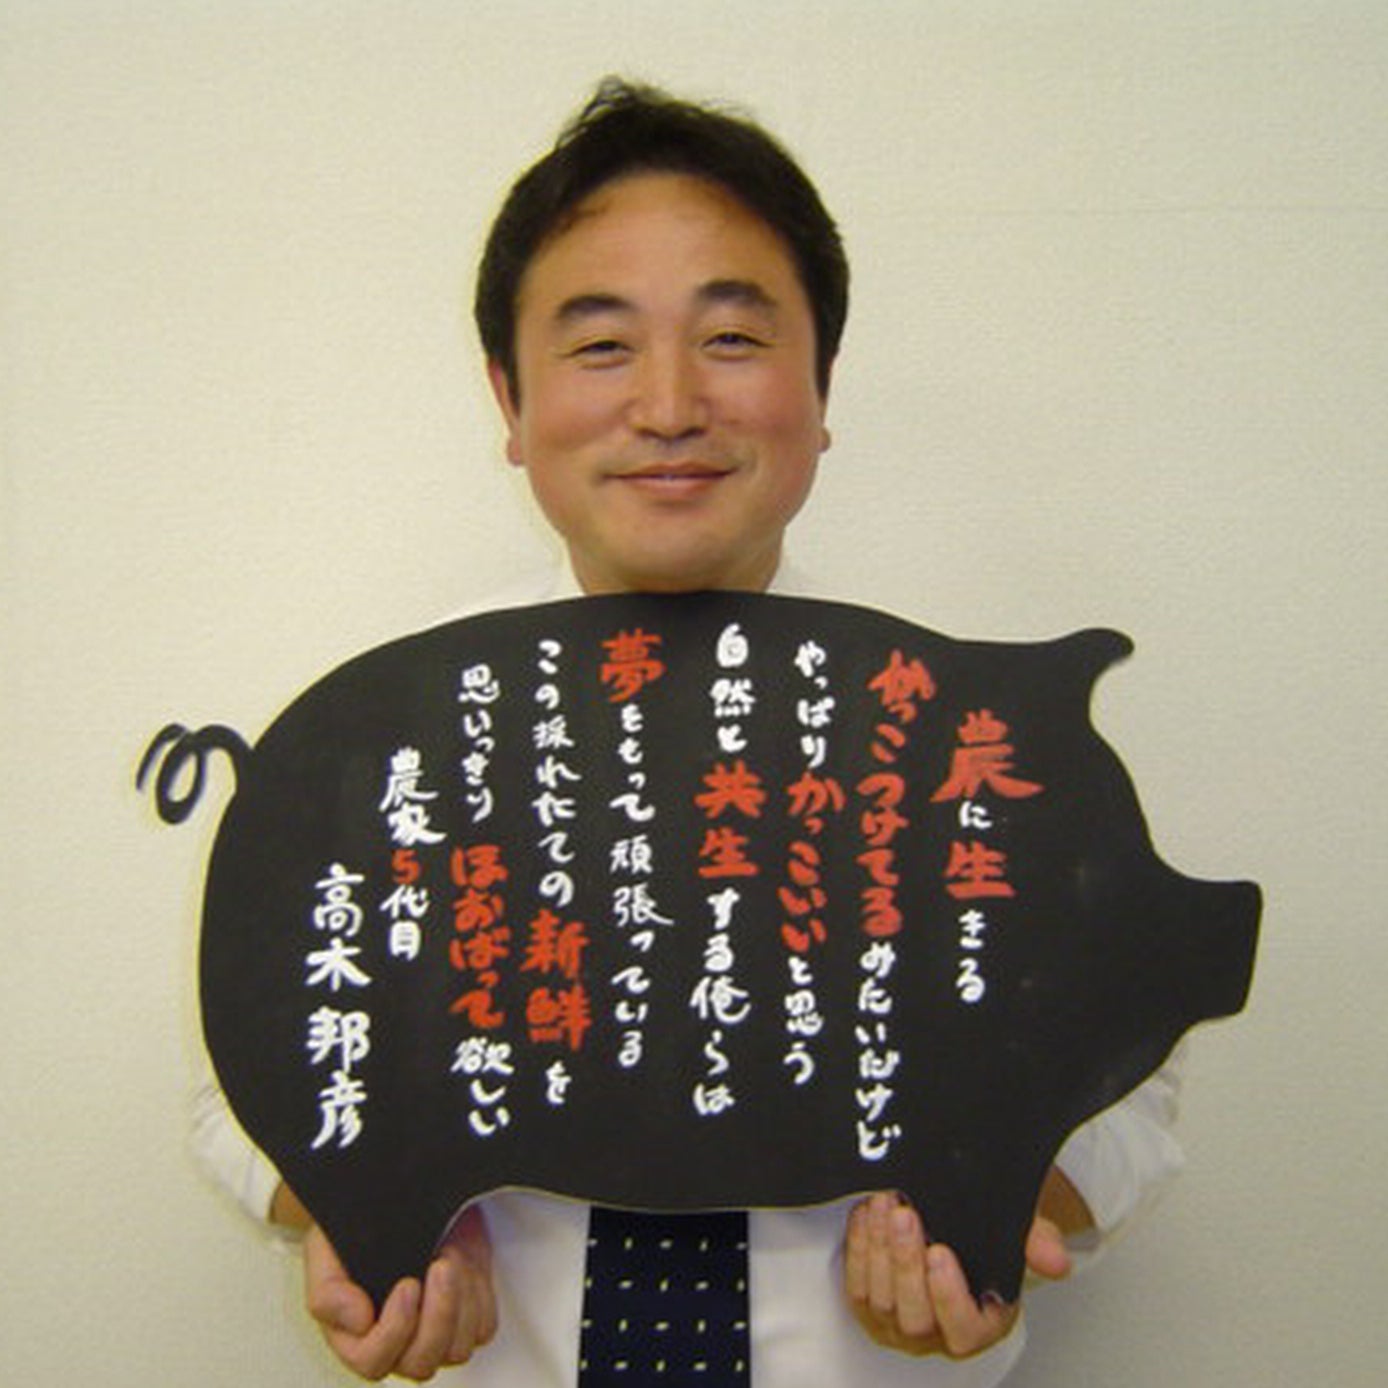 農に生きる
かっこつけてるみたいだけど
やっぱりかっこいいと思う
自然と共生する俺らは
夢をもって頑張っている
この採れたての新鮮を
思いっきりほおばって欲しい
農家5代目
高木邦彦